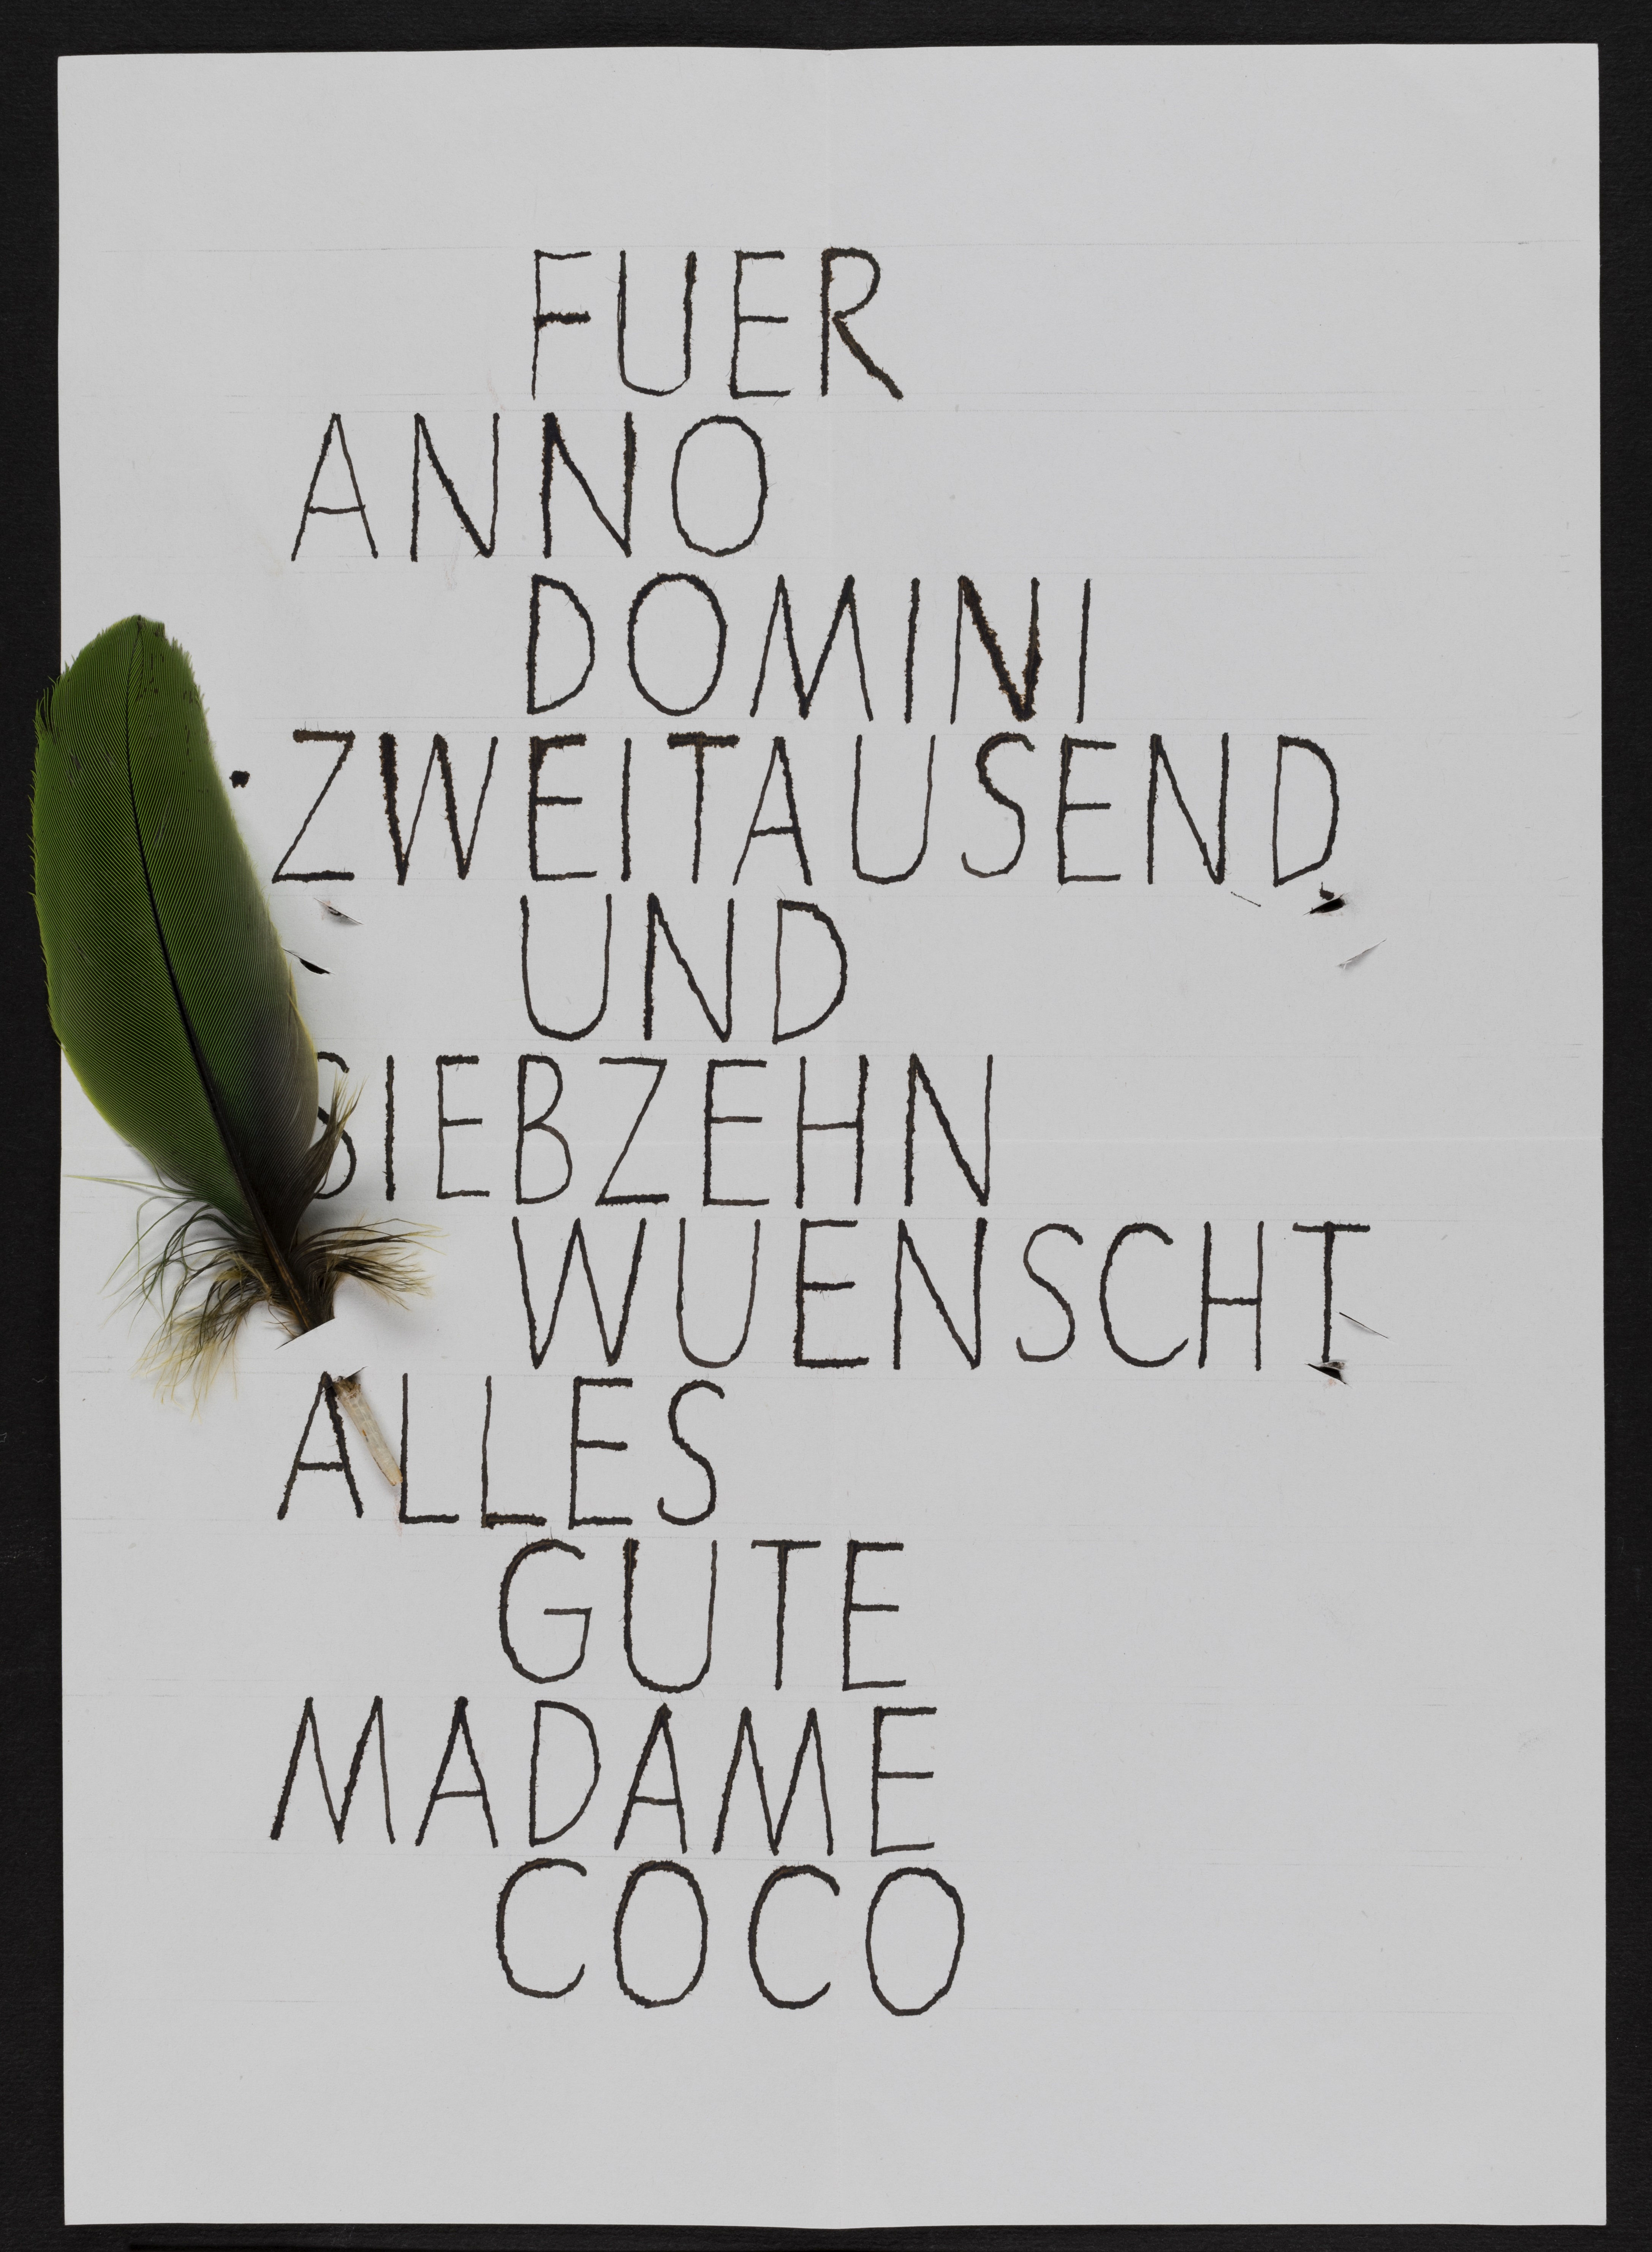 FUER
ANNO
DOMINI
ZWEITAUSEND
UND
SIEBZEHN
WUENSCHT
ALLES
GUTE
MADAME
COCO